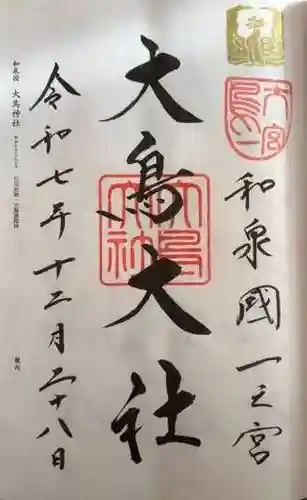 和泉國一之宮
大鳥大社
令和七年十二月二十八日
和泉国 大鳥神社
大鳥大社